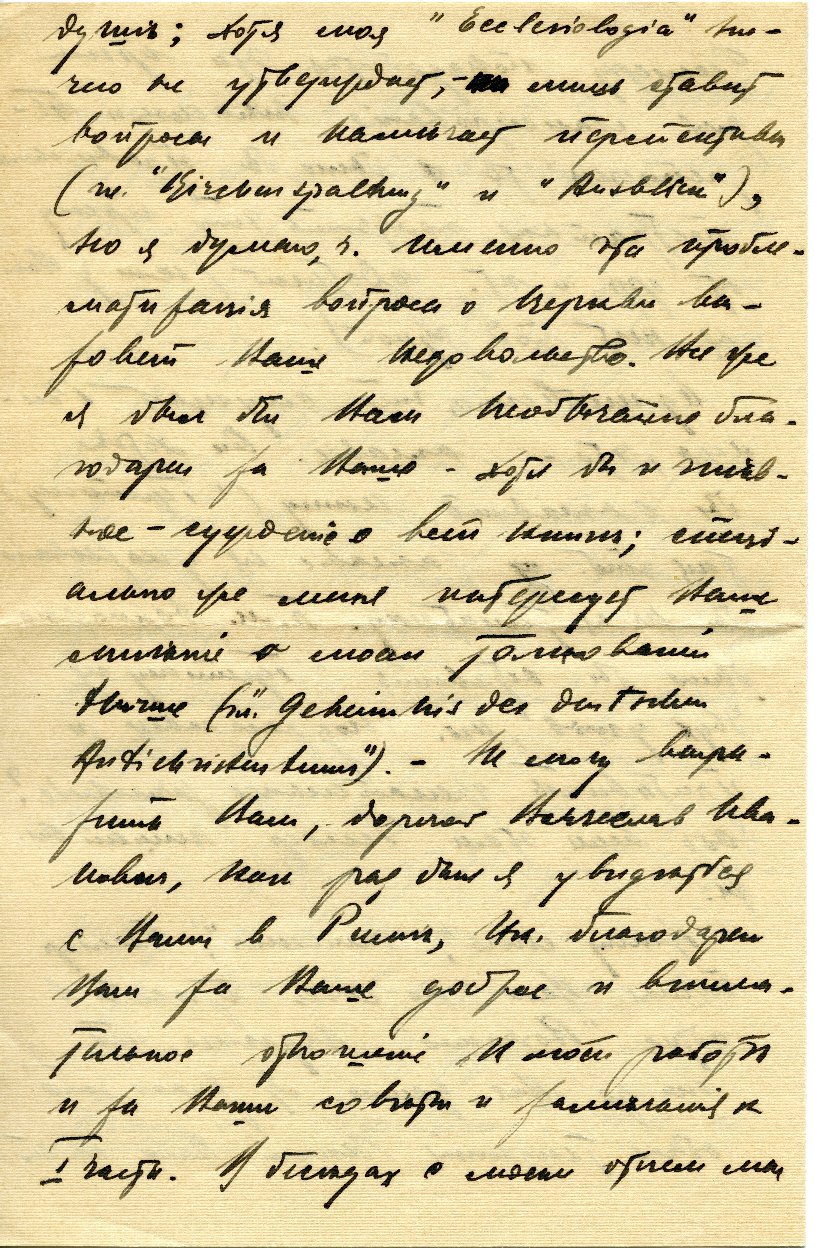 душъ; хотя моя "Ecclesiologia" ни-
чего не утверждает, - лишь ставит
вопросы и намѣчает перспективы
("Kirchenspaltung" и "Ausblick"),
но я думаю, ч. именно эта пробле-
матизація вопроса о Церкви вы-
зовет Ваше недовольство. Но же
я был бы Вам необычайно бла-
годарен за Ваше - хотя бы и гнѣв-
ное - сужденіе о всей книгѣ; спеці-
ально же меня интересует Ваше
мнѣніе о моем толкованіи
Ницше ("Geheimnis des deutschen
Antichristentums"). - Не могу выра-
зить Вам, дорогой Вячеслав Ива-
нович, как рад был я увидѣться
с Вами в Римѣ, как благодарен
Вам за Ваше доброе и внима-
тельное отношеніе к моей работѣ
и за Ваши совѣты и замѣчанія к
I части. В бесѣдах с моим отцем мы